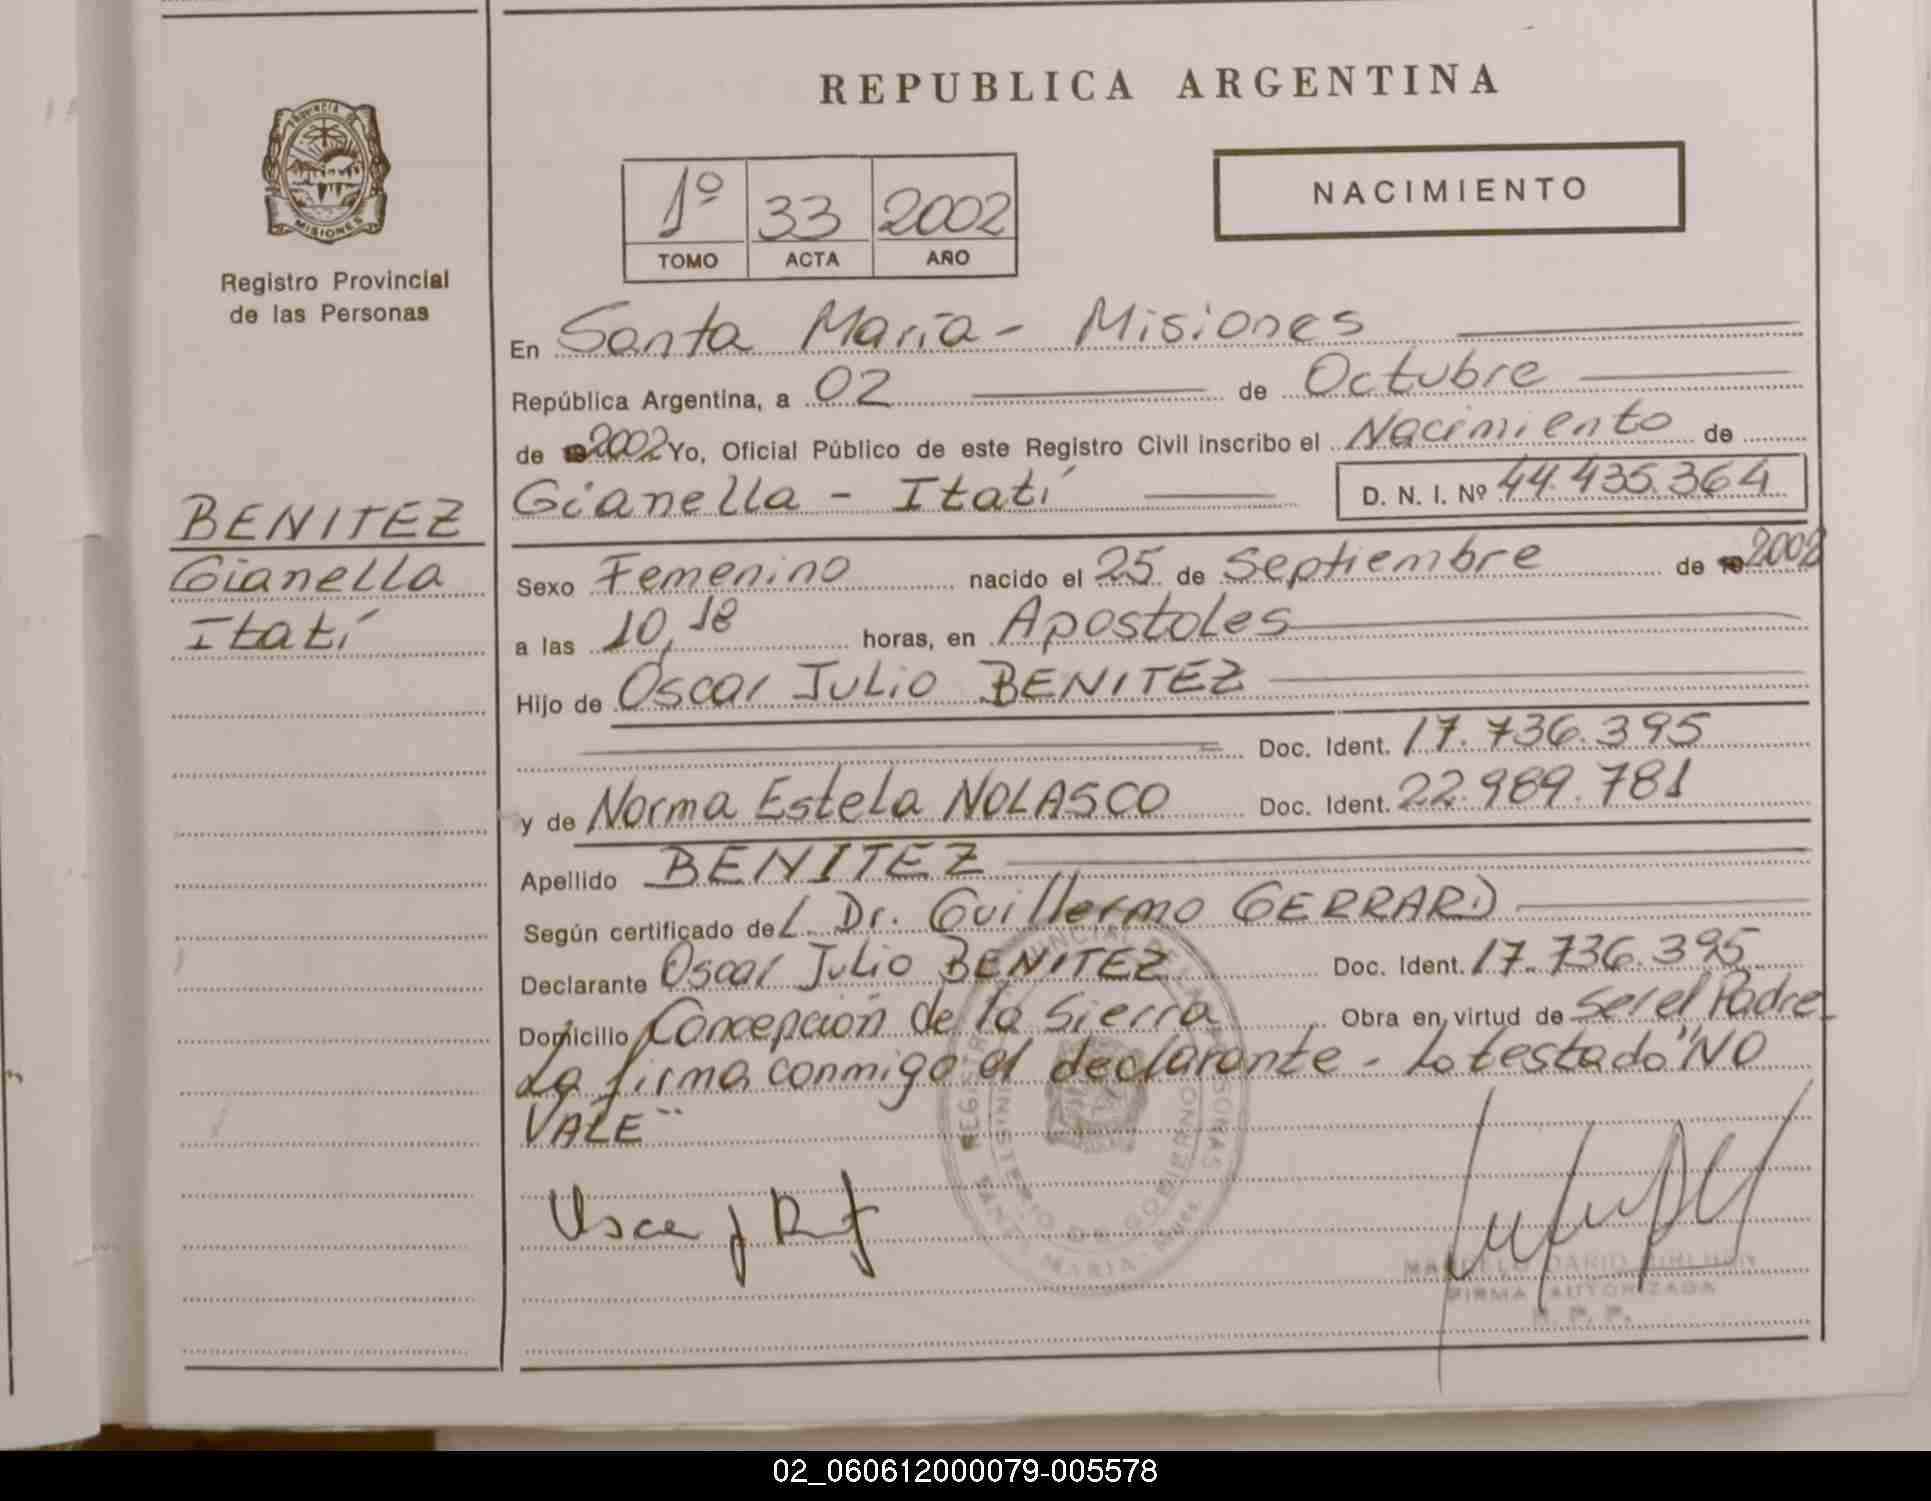 REPUBLICA ARGENTINA
PROVINCIA DE
MISIONES
Registro Provincial
de las Personas
1º 33 2002
TOMO ACTA AÑO
NACIMIENTO
En Santa María - Misiones
República Argentina, a 02 de Octubre
de 2002 Yo, Oficial Público de este Registro Civil inscribo el Nacimiento de
Gianella - Itatí D. N. I. Nº 44.435.364
BENITEZ
Gianella
Itatí
Sexo Femenino nacido el 25 de Septiembre de 2002
a las 10,18 horas, en Apostoles
Hijo de Oscar Julio BENITEZ
Doc. Ident. 17.736.395
y de Norma Estela NOLASCO Doc. Ident. 22.989.781
Apellido BENITEZ
Según certificado de L. Dr. Guillermo GERRARD
Declarante Oscar Julio BENITEZ Doc. Ident. 17.736.395
Domicilio Concepción de la Sierra Obra en virtud de Ser el Padre
La firma conmigo el declarante - Lo testado "NO
VALE"
REGISTRO PROVINCIAL DE LAS PERSONAS
MINISTERIO DE GOBIERNO
SANTA MARIA - Mnes.
Oscar J
DARIO
FIRMA AUTORIZADA
R. P. P.
02_060612000079-005578